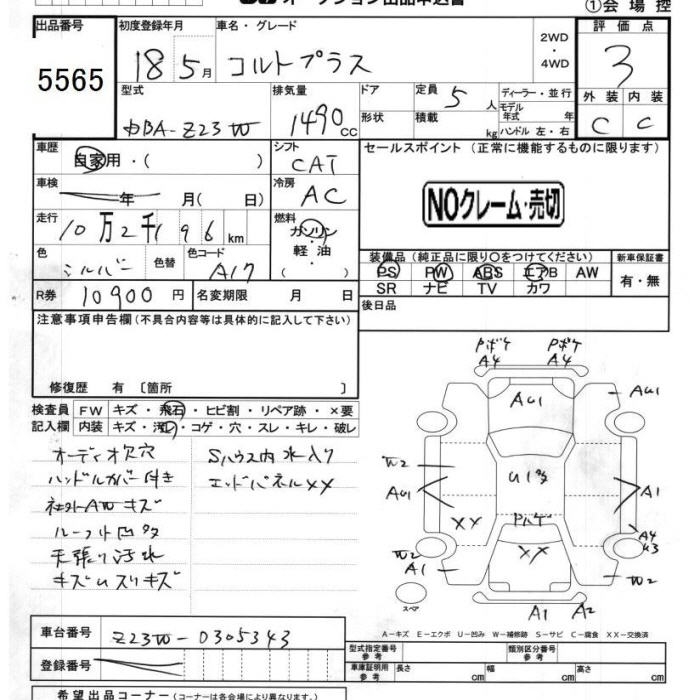 オークション出品申込書
①会場控
出品番号
5565
初度登録年月
18 5月
車名・グレード
コルトプラス
2WD
・
4WD
評価点
3
外装 内装
C C
型式
DBA-Z23W
排気量
1490cc
ドア
形状
定員 5人
積載 kg
ディーラー・並行
モデル年式 年
ハンドル 左・右
車歴
自家用・( )
シフト
CAT
車検
年 月( 日)
冷房
AC
走行
10万2千196km
燃料
ガソリン
軽油
・( )
色
シルバー
色替
色コード
A17
R券 10900円
名変期限 月 日
セールスポイント (正常に機能するものに限ります)
NOクレーム・売切
装備品 (純正品に限り○をつけてください)
PS PW ABS エアB AW
SR ナビ TV カワ
新車保証書
有・無
後日品
注意事項申告欄 (不具合内容等は具体的に記入して下さい)
修復歴 有 〔箇所 〕
検査員記入欄
FW キズ・飛石・ヒビ割・リペア跡・×要
内装 キズ・汚レ・コゲ・穴・スレ・キレ・破レ
オーディオ欠穴
ハンドルカバー付き
社外AWキズ
ルーフ小凹多
天張り汚れ
キズUスリキズ
Sハウス内水入り
エンドパネルXX
Pボケ A4
Pボケ A4
AU1
AU1
W2
AU1
U1多
A1
XX
Pハゲ
XX
A4
U3
W2
A1
W2
スペア
A1 A2
A-キズ E-エクボ U-凹み W-補修跡 S-サビ C-腐食 XX-交換済
車台番号 Z23W-0305343
登録番号
型式指定番号 参考
類別区分番号 参考
車庫証明用 参考
長さ cm
幅 cm
高さ cm
希望出品コーナー (コーナーは各会場により異なります。)